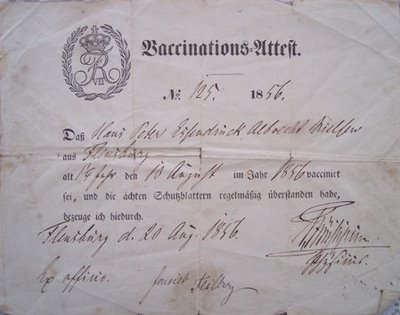 FR VII
Vaccinations-Attest.
№ 125. 1856.
Daß Hans Peter Albrecht Nielsen
aus Flensburg
alt den 13 August im Jahr 1856 vaccinirt
sei, und die ächten Schutzblattern regelmäßig überstanden habe,
bezeuge ich hiedurch.
Flensburg d. 20 Aug. 1856.
Physicus.
Ex officio.